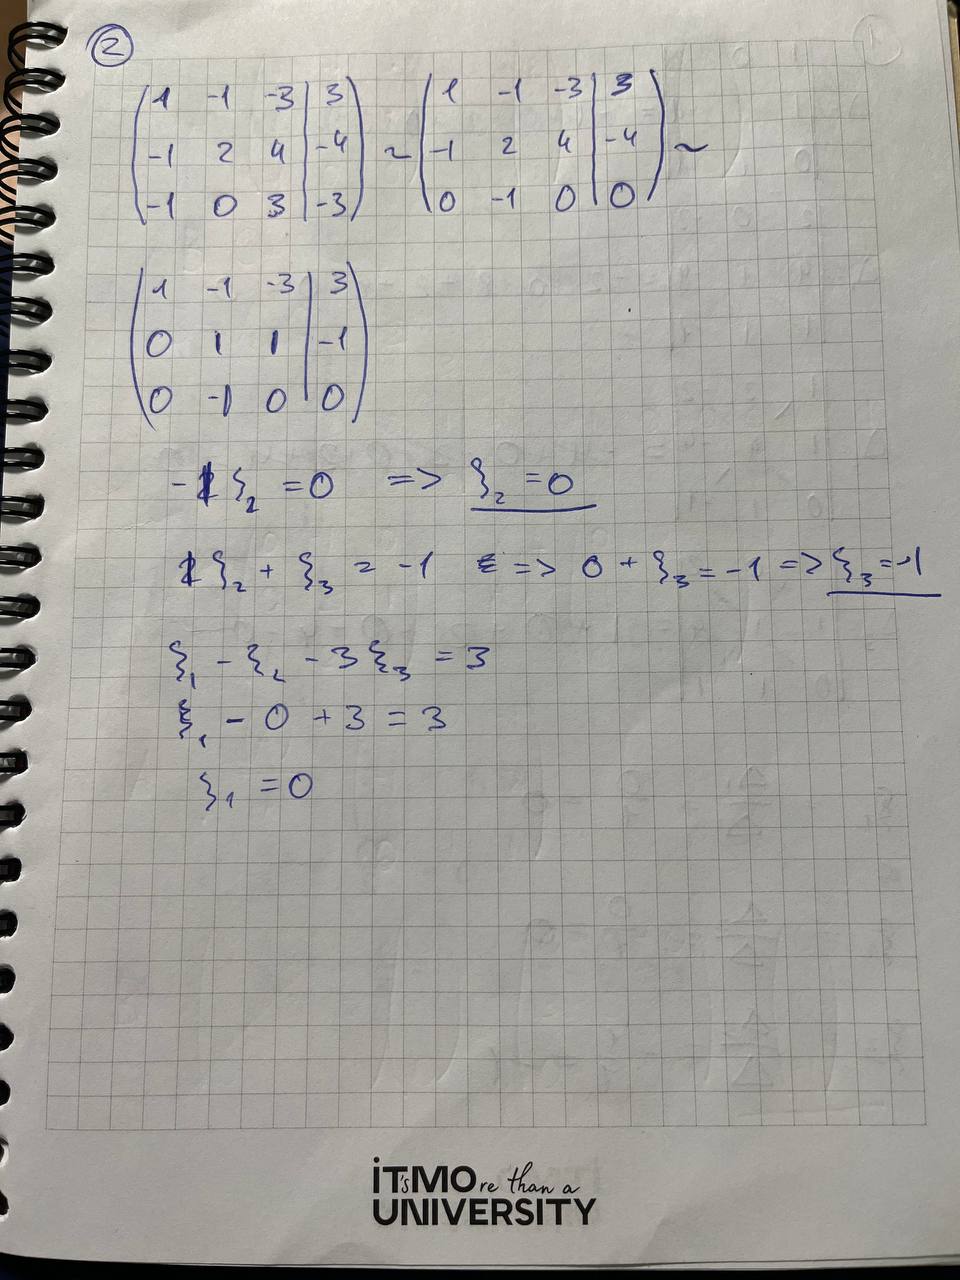 2
1 -1 -3 | 3 ~ 1 -1 -3 | 3 ~
-1 2 4 | -4 -1 2 4 | -4
-1 0 3 | -3 0 -1 0 | 0
1 -1 -3 | 3
0 1 1 | -1
0 -1 0 | 0
-1 ξ₂ = 0 => ξ₂ = 0
1 ξ₂ + ξ₃ = -1 => 0 + ξ₃ = -1 => ξ₃ = -1
ξ₁ - ξ₂ - 3 ξ₃ = 3
ξ₁ - 0 + 3 = 3
ξ₁ = 0
iT'sMOre than a
UNIVERSITY